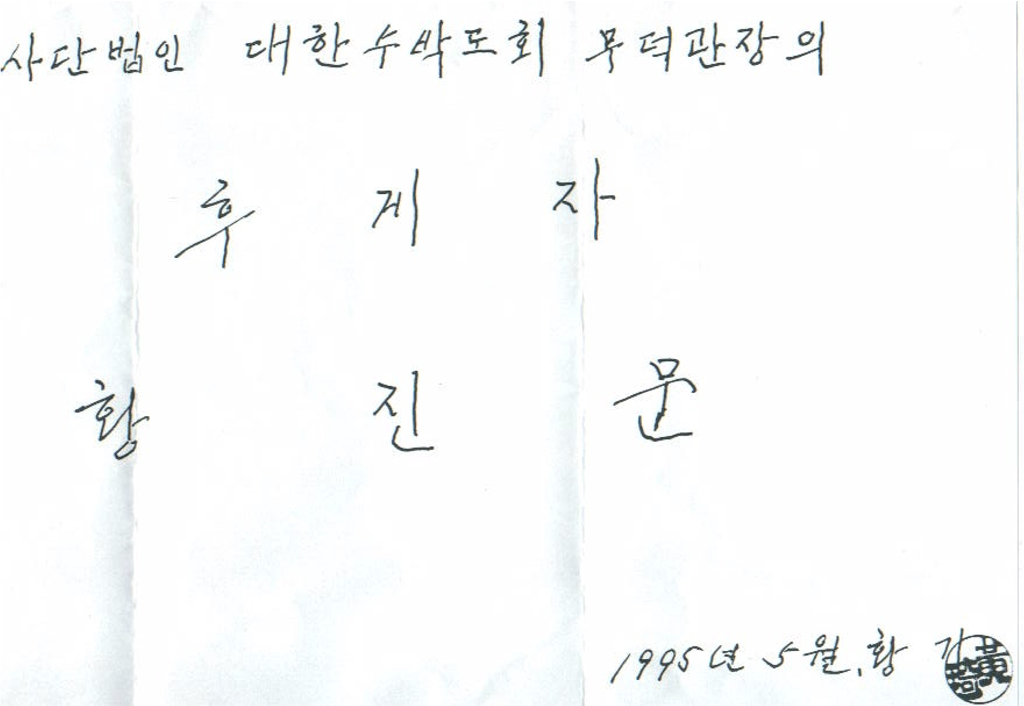 사단법인 대한수박도회 무덕관장의
후 계 자
황 진 문
1995년 5월. 황 기